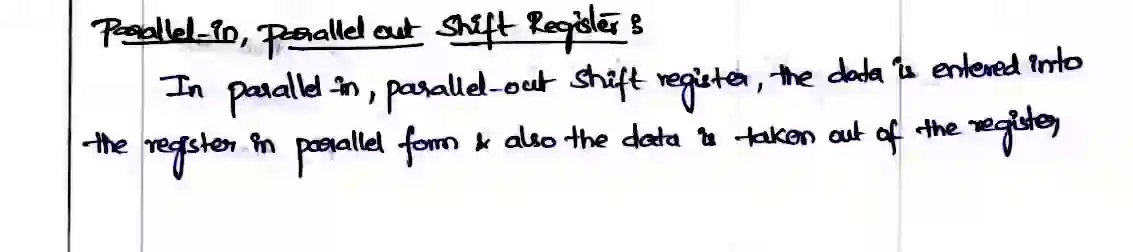 Parallel-in, Parallel out Shift Register :
In parallel-in, parallel-out Shift register, the data is entered into
the register in parallel form & also the data is taken out of the register,